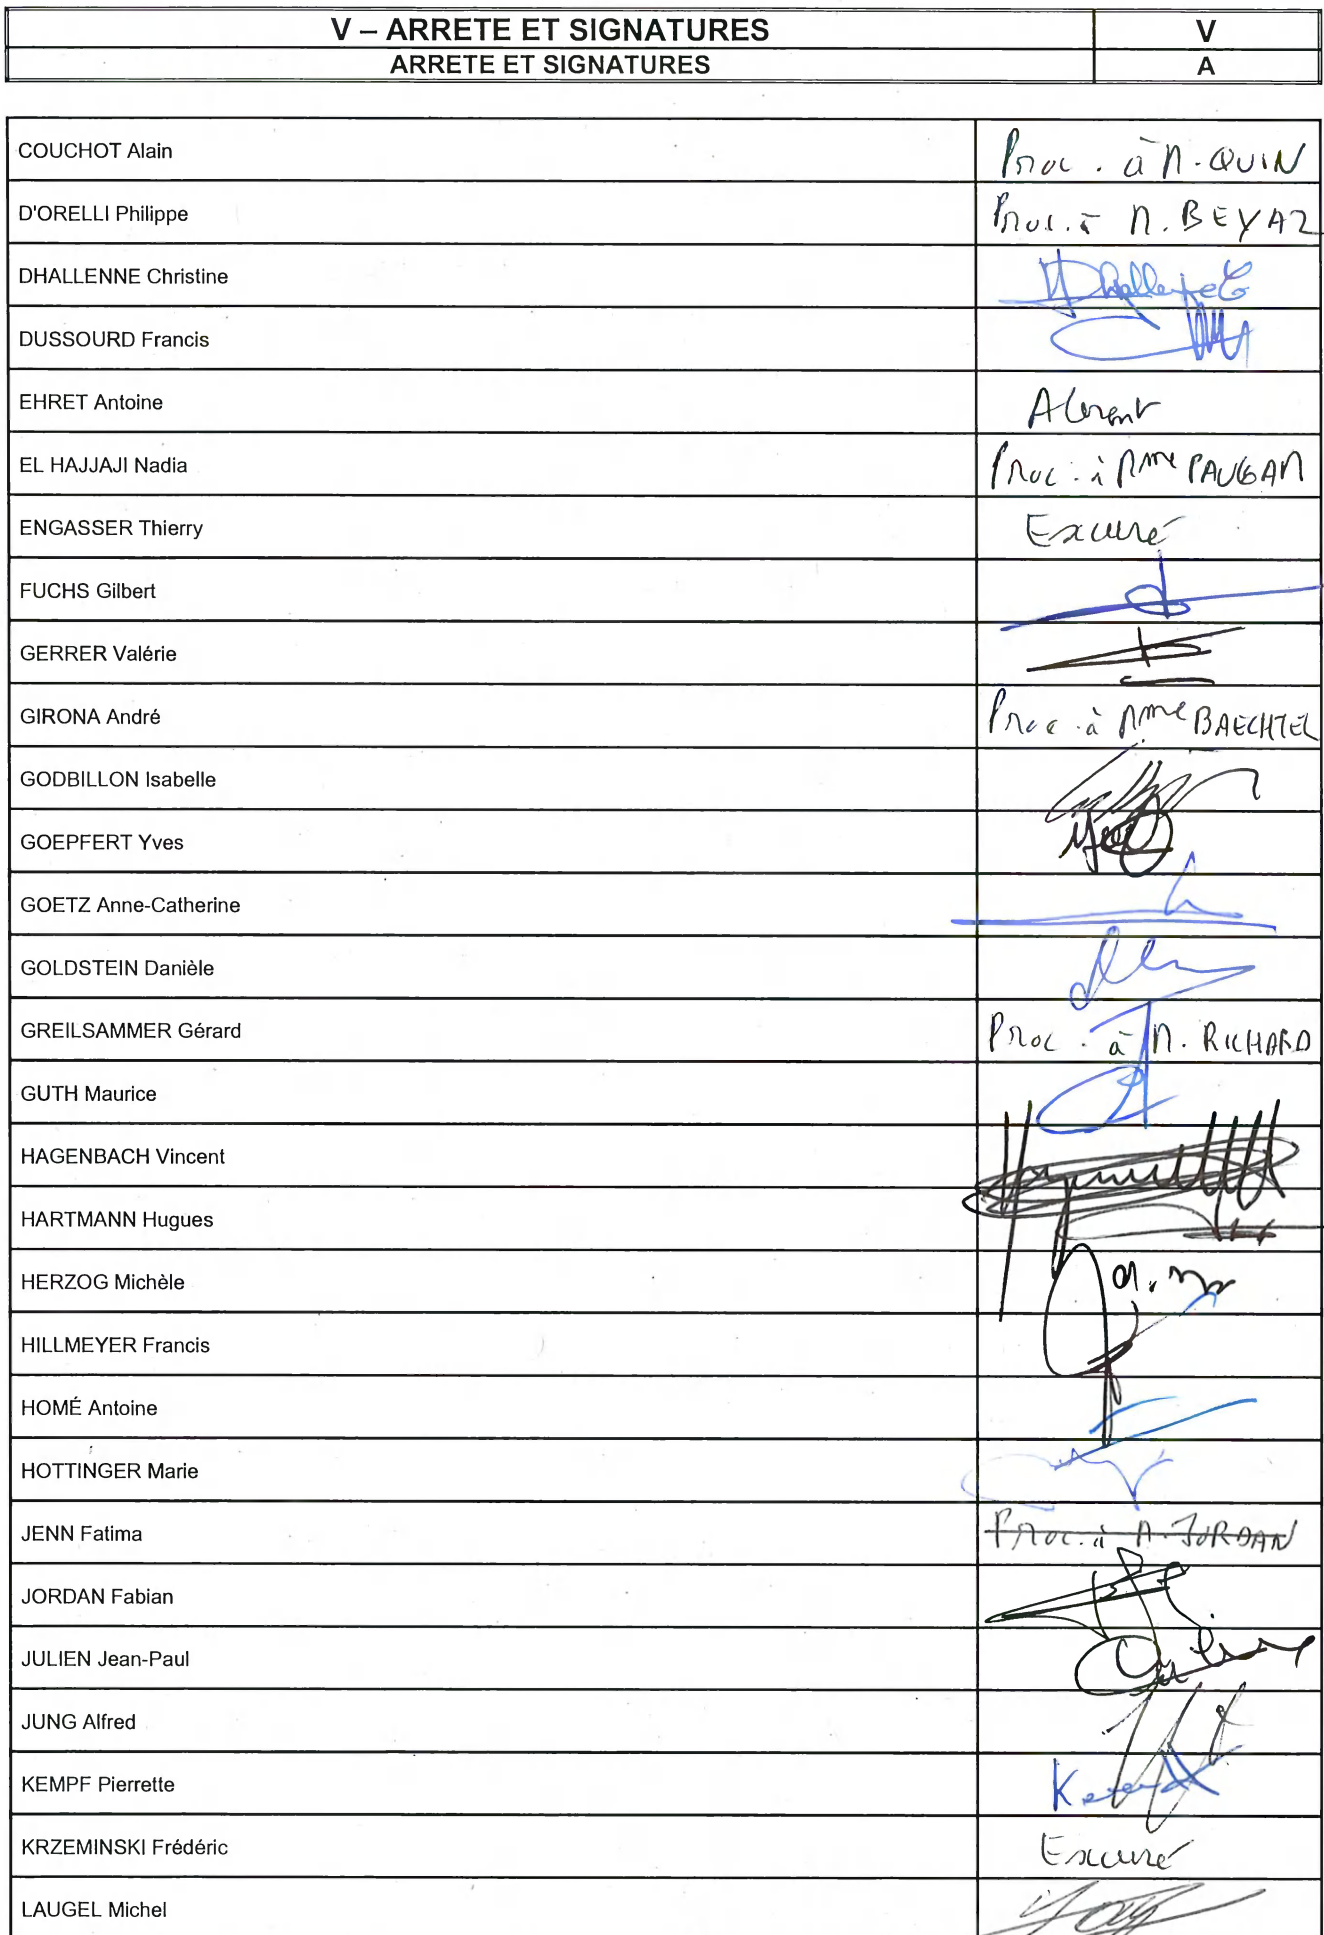 V – ARRETE ET SIGNATURES V
ARRETE ET SIGNATURES A
COUCHOT Alain Proc. à M. QUIN
D'ORELLI Philippe Proc. à M. BEYAZ
DHALLENNE Christine
DUSSOURD Francis
EHRET Antoine Absent
EL HAJJAJI Nadia Proc. à Mme PAUGAM
ENGASSER Thierry Excusé
FUCHS Gilbert
GERRER Valérie
GIRONA André Proc à Mme BAECHTEL
GODBILLON Isabelle
GOEPFERT Yves
GOETZ Anne-Catherine
GOLDSTEIN Danièle
GREILSAMMER Gérard Proc. à M. RICHARD
GUTH Maurice
HAGENBACH Vincent
HARTMANN Hugues
HERZOG Michèle
HILLMEYER Francis
HOMÉ Antoine
HOTTINGER Marie
JENN Fatima Proc. à M. JORDAN
JORDAN Fabian
JULIEN Jean-Paul
JUNG Alfred
KEMPF Pierrette
KRZEMINSKI Frédéric Excusé
LAUGEL Michel